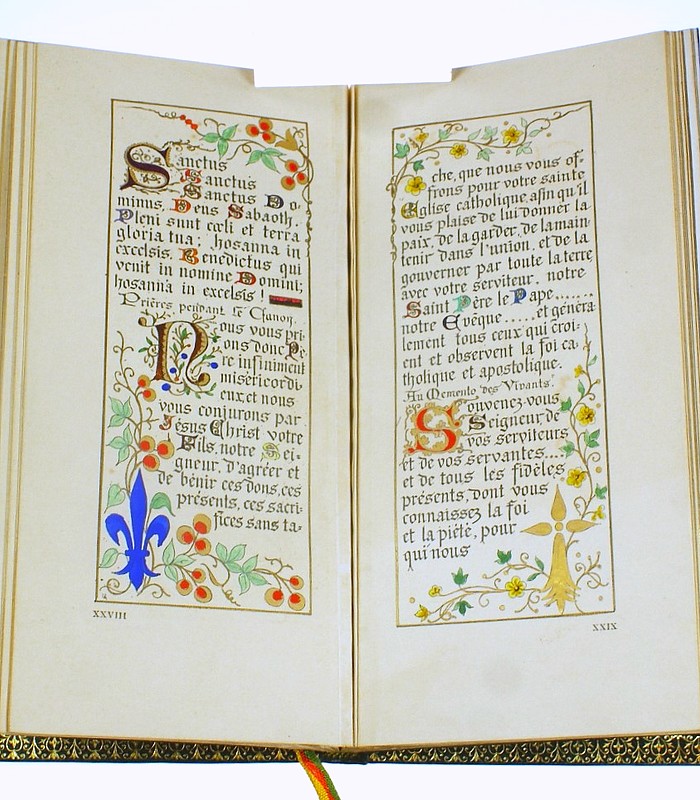 Sanctus
Sanctus
Sanctus Do-
minus, Deus Sabaoth.
Pleni sunt cœli et terra
gloria tua; hosanna in
excelsis. Benedictus qui
venit in nomine Domini;
hosanna in excelsis!
Prières pendant le Canon.
Nous vous pri-
ons donc Pe-
re infiniment
miséricordi-
eux, et nous
vous conjurons par
Jésus Christ votre
Fils, notre Sei-
gneur, d'agréer et
de bénir ces dons, ces
présents, ces sacri-
fices sans ta-
XXVIII
che, que nous vous of-
frons pour votre sainte
Eglise catholique, afin qu'il
vous plaise de lui donner la
paix, de la garder, de la main-
tenir dans l'union, et de la
gouverner par toute la terre
avec votre serviteur, notre
Saint Père le Pape........
notre Evêque......et généra
lement tous ceux qui croi-
ent et observent la foi ca-
tholique et apostolique.
Au Memento des Vivants.
Souvenez-vous
Seigneur, de
vos serviteurs
et de vos servantes....
et de tous les fidèles
présents, dont vous
connaissez la foi
et la piété, pour
qui nous
XXIX